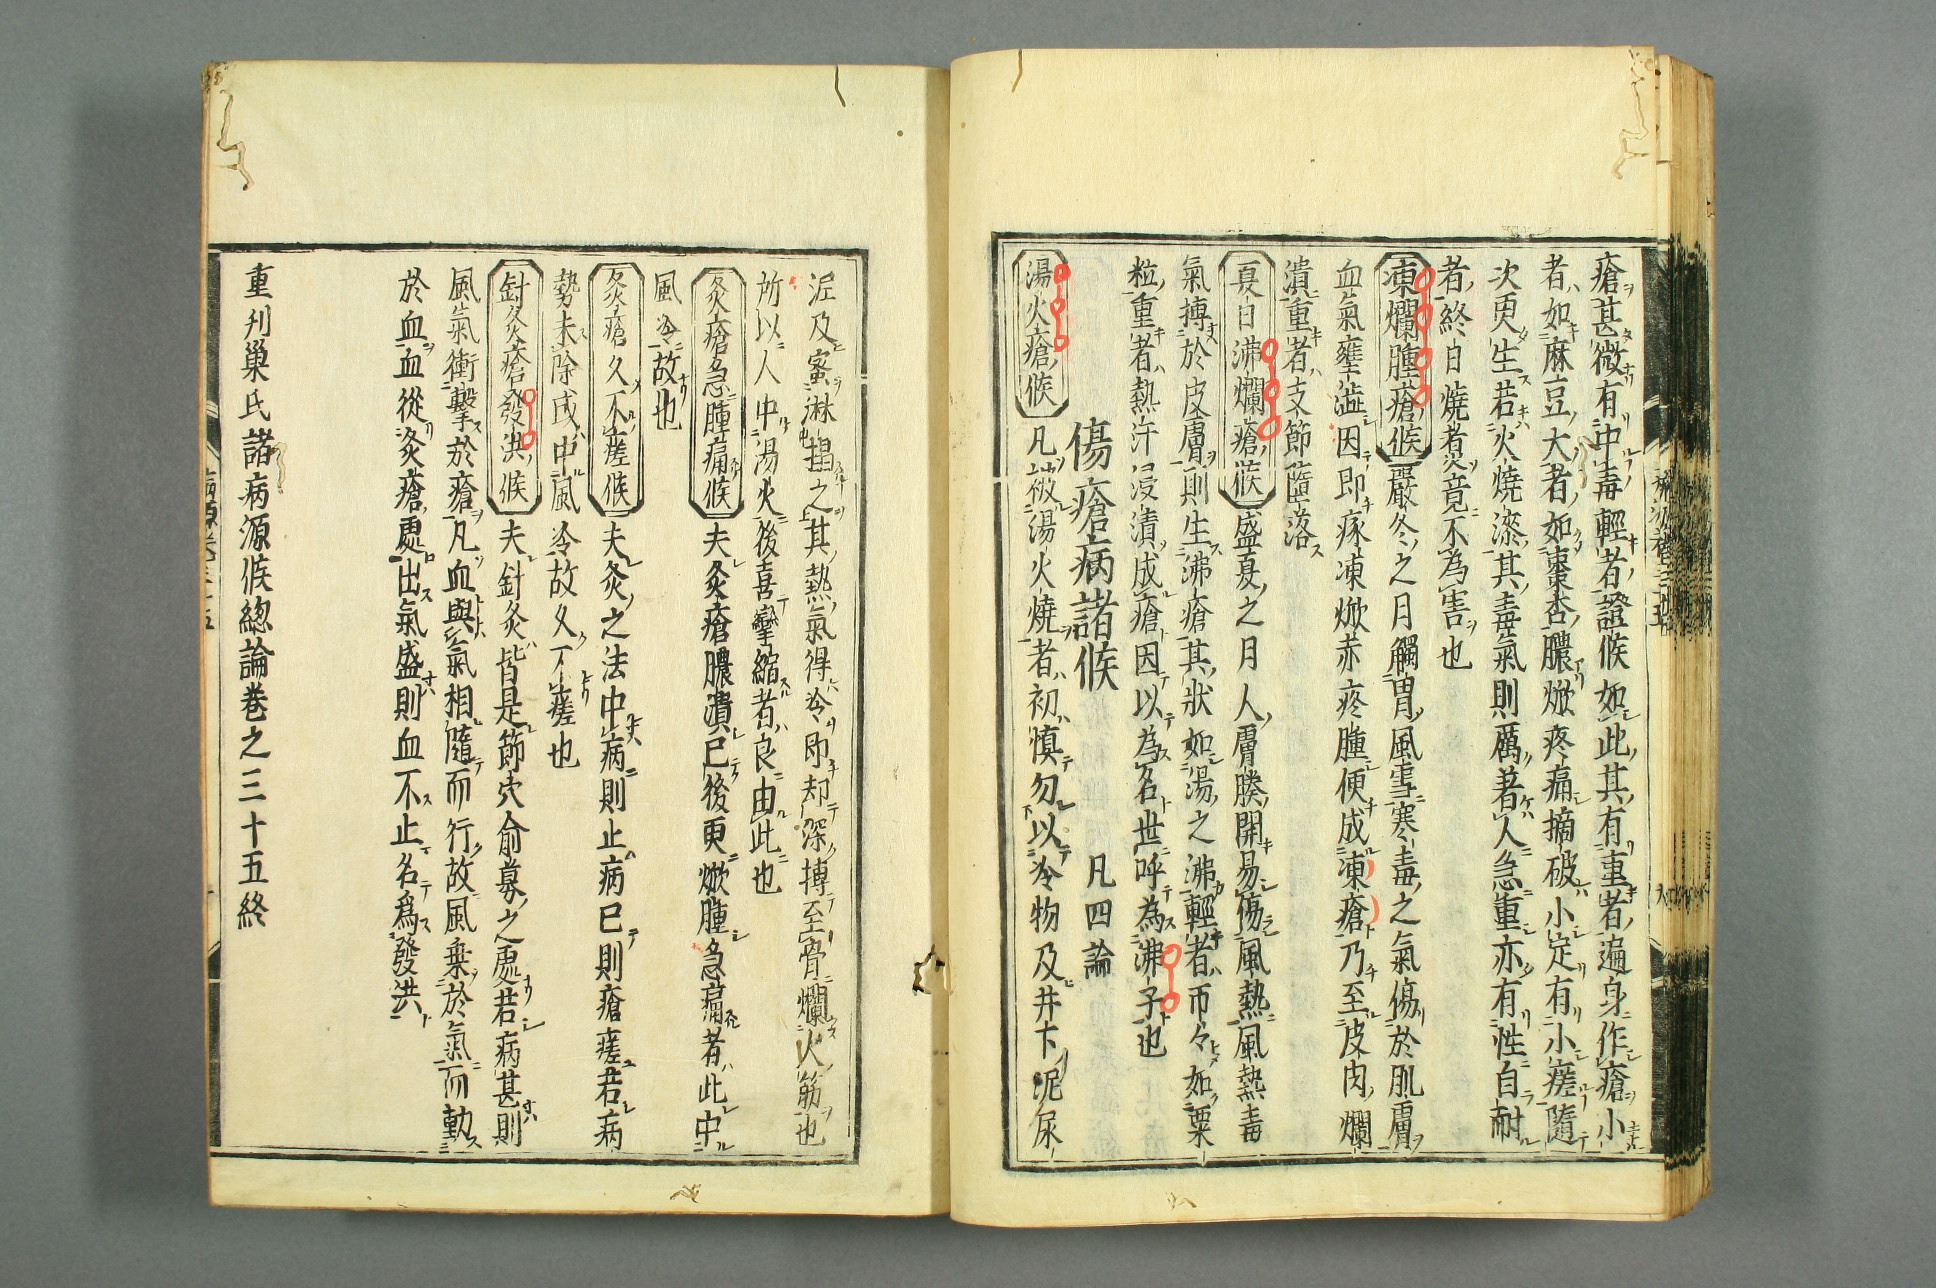 瘡甚微有中毒輕者證候如此其有重者遍身作瘡小
者如麻豆大者如棗杏膿焮疼痛摘破小定有小瘥隨
次更生若火燒漆其毒氣則厲著人急重亦有性自耐
者終日燒煑竟不為害也
凍爛腫瘡候 嚴冬之月觸冒風雪寒毒之氣傷於肌膚
血氣壅澁因即瘃凍焮赤疼腫便成凍瘡乃至皮肉爛
潰重者支節墮落
夏日沸爛瘡候 盛夏之月人膚腠開易傷風熱風熱毒
氣搏於皮膚則生沸瘡其狀如湯之沸輕者帀々如粟
粒重者熱汗浸漬成瘡因以為名世呼為沸子也
傷瘡病諸候 凡四論
湯火瘡候 凡被湯火燒者初慎勿以冷物及井下泥尿
泥及蜜淋搨之其熱氣得冷即却深搏至骨爛火筋也
所以人中湯火後喜攣縮者良由此也
灸瘡急腫痛候 夫灸瘡膿潰已後更焮腫急痛者此中
風冷故也
灸瘡久不瘥候 夫灸之法中病則止病已則瘡瘥若病
勢未除或中風冷故久不瘥也
針灸瘡發洪候 夫針灸皆是節穴俞募之處若病甚則
風氣衝擊於瘡凡血與氣相隨而行故風乗於氣而動
於血血從灸瘡處出氣盛則血不止名爲發洪
重刋巢氏諸病源候總論卷之三十五終